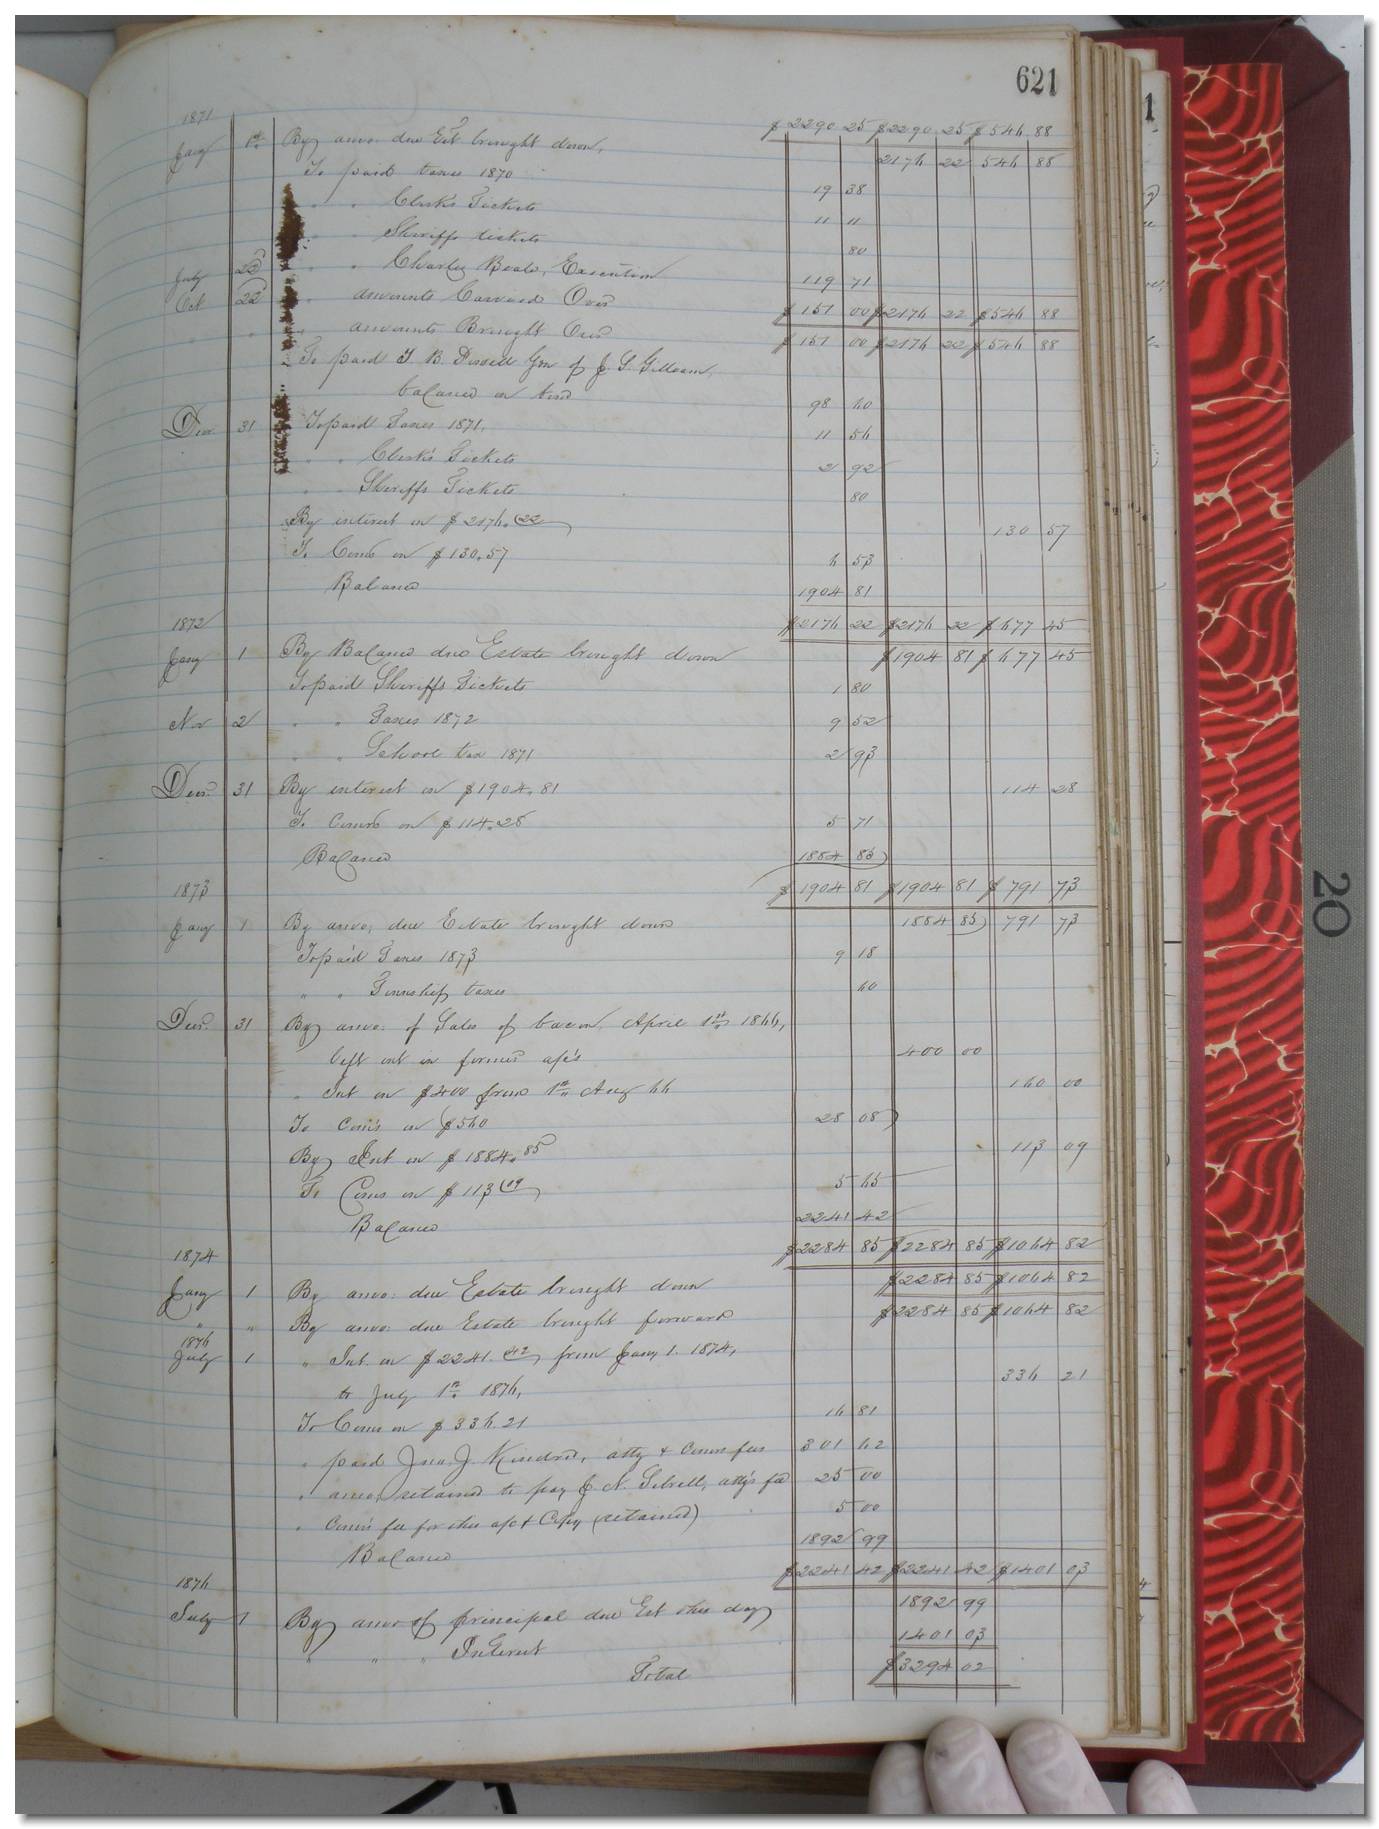 621
1871 $2290 25 $2290 25 $546 88
Jany 1st By amo. due Est brought down, 2176 22 546 88
To paid taxes 1870 19 38
" " Clerk's Tickets 11 11
" " Sheriffs tickets 80
July 25 " " Charley Execution 119 71
Oct 22 " amounts Carried Over $151 00 $2176 22 $546 88
" " " amounts Brought Over $151 00 $2176 22 $546 88
To paid J B. Gdn of J. S. Gilliam,
balance on bond 98 60
Decr 31 To paid Taxes 1871, 11 56
" " Clerk's Tickets 2 92
" " Sheriffs Tickets 80
By interest on $2176.22 130 57
To Coms on $130.57 6 53
Balance 1904 81
1872 $2176 22 $2176 22 $677 45
Jany 1 By Balance due Estate brought down $1904 81 $677 45
To paid Sheriffs Tickets 1 80
Nov 2 " " Taxes 1872 9 52
" " School tax 1871 2 93
Decr. 31 By interest on $1904.81 114 28
To Coms on $114.28 5 71
Balance 1884 85
1873 $1904 81 $1904 81 $791 73
Jany 1 By amo, due Estate brought down 1884 85 791 73
To paid Taxes 1873 9 18
" " Township taxes 60
Decr. 31 By amo: of Sales of bacon, April 1st 1866,
left out in former a/c's 400 00
" Int on $400 from 1st Aug 66 160 00
To Com's on $560 28 08
By Int on $1884.85 113 09
To Coms on $113.09 5 65
Balance 2241 42
1874 $2284 85 $2284 85 $1064 82
Jany 1 By amo: due Estate brought down $2284 85 $1064 82
" " By amo: due Estate brought forward $2284 85 $1064 82
1876
July 1 " Int. on $2241.42, from Jany 1. 1874,
to July 1st 1876, 336 21
To Coms on $336.21 16 81
" paid Jno. J. Kindred, atty & Coms fees 301 62
" amo, retained to pay J. N. atty's fee 25 00
" Com's fee for this a/c & Copy (retained) 5 00
Balance 1892 99
1876 $2241 42 $2241 42 $1401 03
July 1 By amo of principal due Est this day 1892 99
" " " Interest 1401 03
Total $3294 02
20